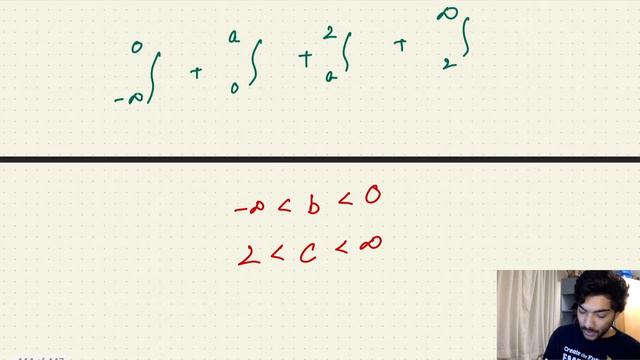 ∫_{-∞}^{0} + ∫_{0}^{a} + ∫_{a}^{2} + ∫_{2}^{∞}
-∞ < b < 0
2 < c < ∞